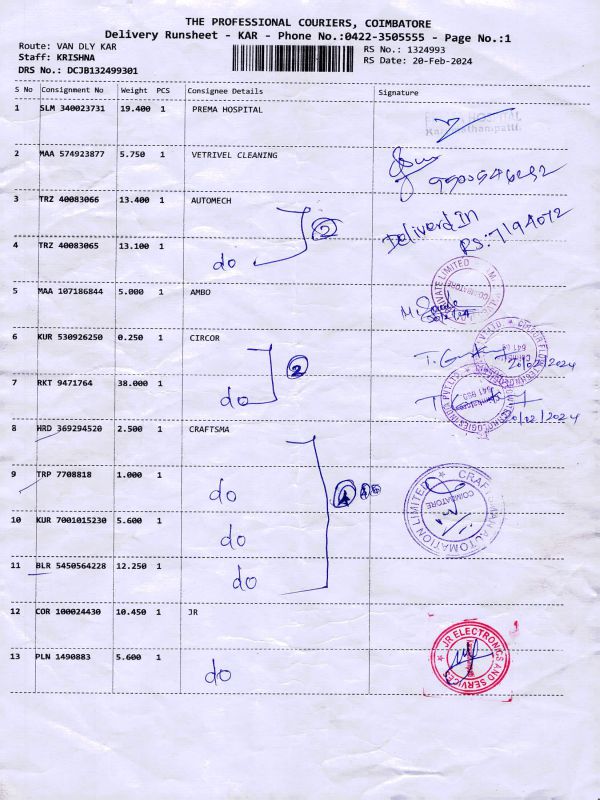 THE PROFESSIONAL COURIERS, COIMBATORE
Delivery Runsheet - KAR - Phone No.:0422-3505555 - Page No.:1
Route: VAN DLY KAR RS No.: 1324993
Staff: KRISHNA RS Date: 20-Feb-2024
DRS No.: DCJB132499301
S No Consignment No Weight PCS Consignee Details Signature
1 SLM 340023731 19.400 1 PREMA HOSPITAL
2 MAA 574923877 5.750 1 VETRIVEL CLEANING
3 TRZ 40083066 13.400 1 AUTOMECH 2 Deliverd In
4 TRZ 40083065 13.100 1 do RS:7194072
5 MAA 107186844 5.000 1 AMBO
6 KUR 530926250 0.250 1 CIRCOR 2 20/02/2024
7 RKT 9471764 38.000 1 do
8 HRD 369294520 2.500 1 CRAFTSMA
9 TRP 7708818 1.000 1 do 4
CRAFTSMAN AUTOMATION LIMITED
COIMBATORE
10 KUR 7001015230 5.600 1 do
11 BLR 5450564228 12.250 1 do
12 COR 100024430 10.450 1 JR
JR ELECTRONICS AND SERVICES
13 PLN 1490883 5.600 1 do